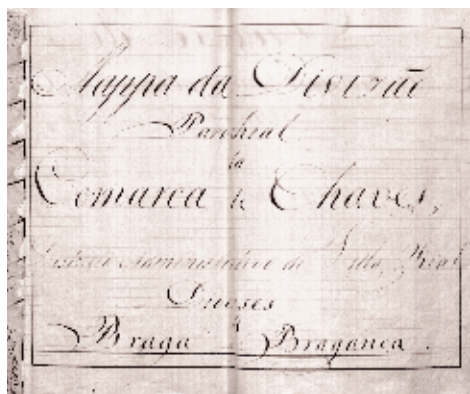 Mappa da Divizaõ
Parochial
da
Comarca de Chaves,
Districto Administrativo de Villa Real
Dioceses
de
Braga e Bragança